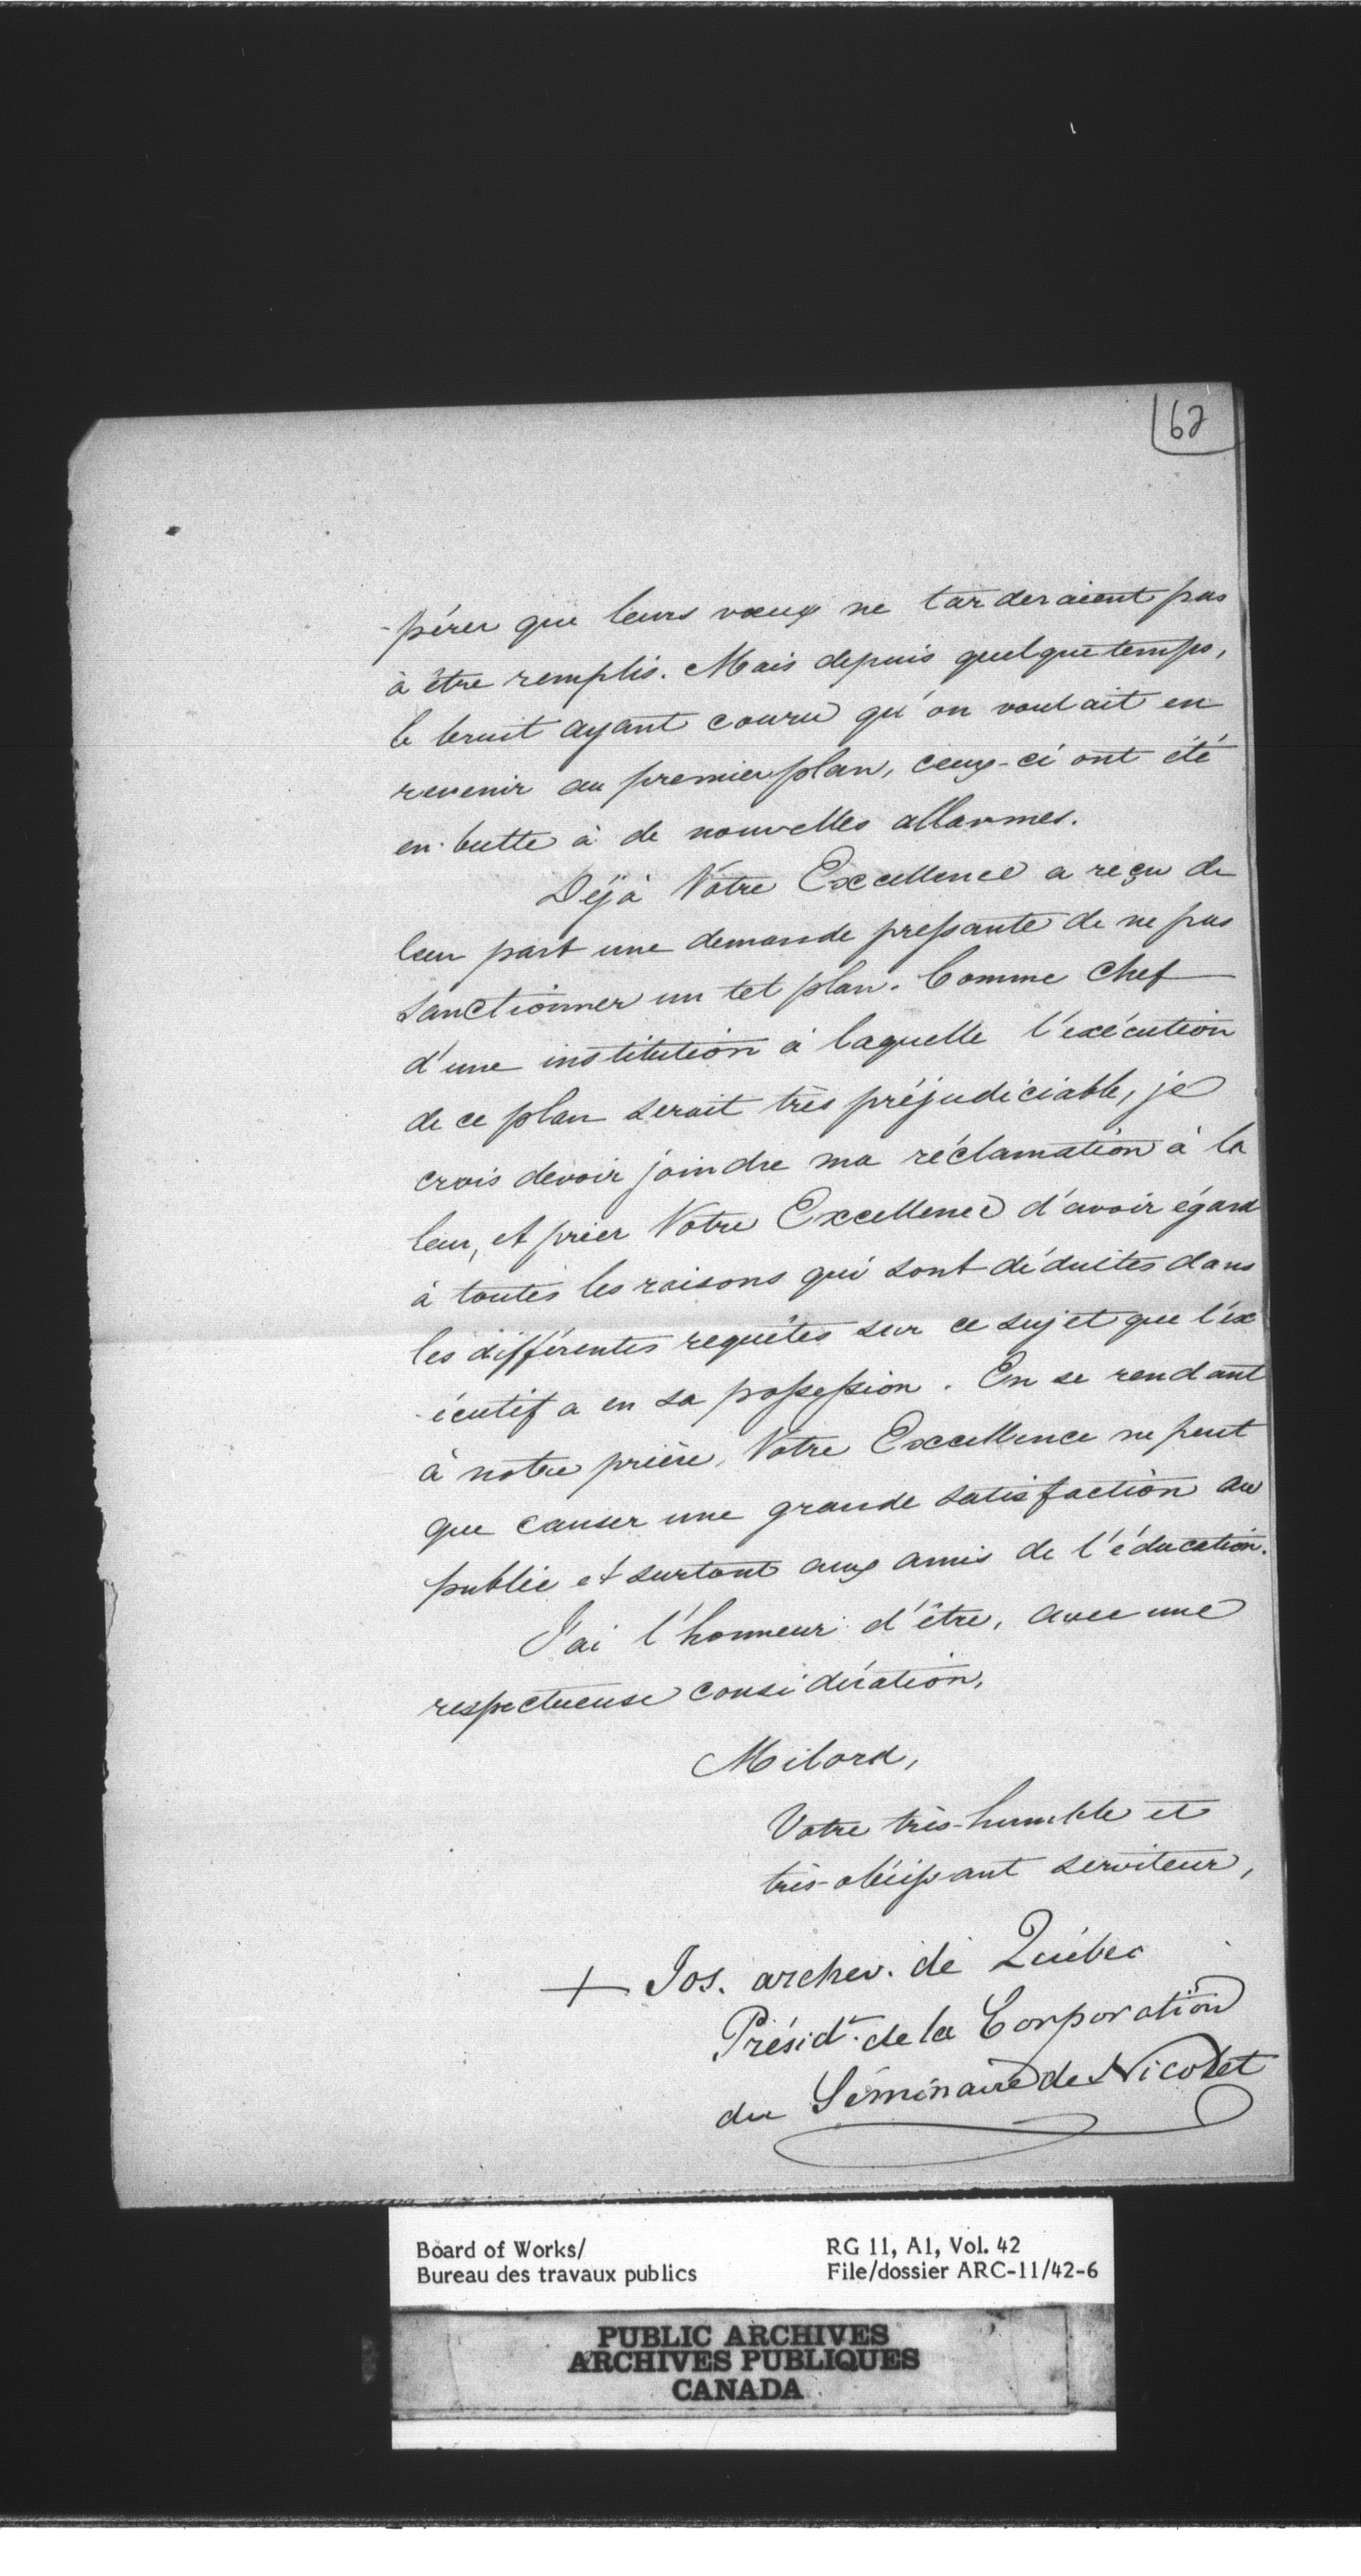 62
-pérer que leurs vœux ne tarderaient pas
à être remplis. Mais depuis quelque temps,
le bruit ayant couru qu'on voulait en
revenir au premier plan, ceux-ci ont été
en butte à de nouvelles allarmes.
Déjà Votre Excellence a reçu de
leur part une demande pressante de ne pas
sanctionner un tel plan. Comme Chef
d'une institution à laquelle l'exécution
de ce plan serait très préjudiciable, je
crois devoir joindre ma réclamation à la
leur, et prier Votre Excellence d'avoir égard
à toutes les raisons qui sont déduites dans
les différentes requêtes sur ce sujet que l'ex
-écutif a en sa possession. En se rendant
à notre prière, Votre Excellence ne peut
que causer une grande satisfaction au
public et surtout aux amis de l'éducation.
J'ai l'honneur d'être, avec une
respectueuse considération,
Milord,
Votre très-humble et
très-obéissant serviteur,
+ Jos. archev. de Québec
Présidt. de la Corporation
du Séminaire de Nicolet
Board of Works/
Bureau des travaux publics
RG 11, A1, Vol. 42
File/dossier ARC-11/42-6
PUBLIC ARCHIVES
ARCHIVES PUBLIQUES
CANADA